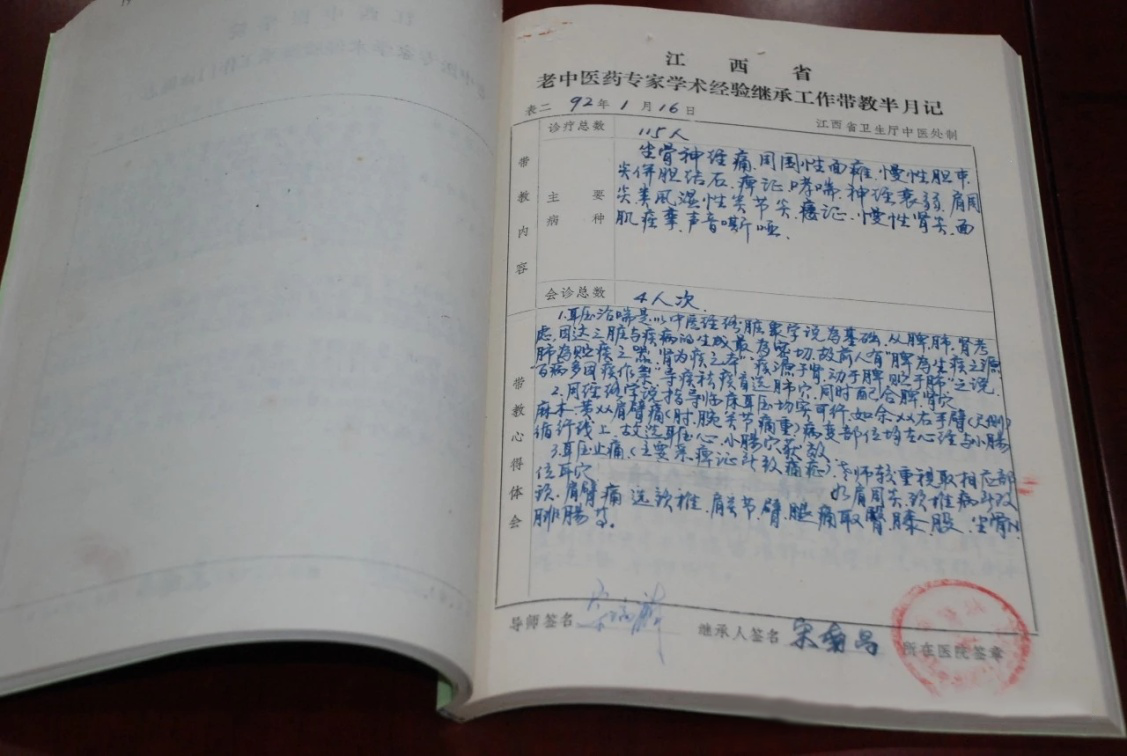 江西省
老中医药专家学术经验继承工作带教半月记
表二 92年1月16日
江西省卫生厅中医处制
带教内容
诊疗总数
115人
主要病种
坐骨神经痛.周围性面瘫.慢性胆中
炎併胆结石.痹证.哮喘.神经衰弱.肩周
炎.类风湿性关节炎.瘾证.慢性肾炎.面
肌痉挛.声音嘶哑.
会诊总数
4人次.
带教心得体会
1.耳压治喘是以中医经络,脏象学说为基础,从脾肺.肾考
虑,因达三脏与疾病的生成最为密切,故前人有"脾为生痰之源
肺为贮痰之器.肾为痰之本".痰源于肾,动于脾,贮于肺"之说.
百病多因痰作祟".寻痰祛痰首选肺穴,同时配合脾肾穴
2.用经络学说指导临床耳压切实可行,如余××右手臂(尺侧)
麻木.黄××肩臂痛(肘.腕关节痛重)病变部位均在心经与小肠
循行线上,故选耳压心.小肠穴获效.
3.耳压止痛(主要系痹证所致痛症)老师较重视取相应部
位耳穴 如肩周炎.颈椎病所致
颈.肩臂痛选颈椎.肩关节.臂.腿痛取臀.膝.股.坐骨.
腓肠等.
导师签名
继承人签名 宋南昌
所在医院签章